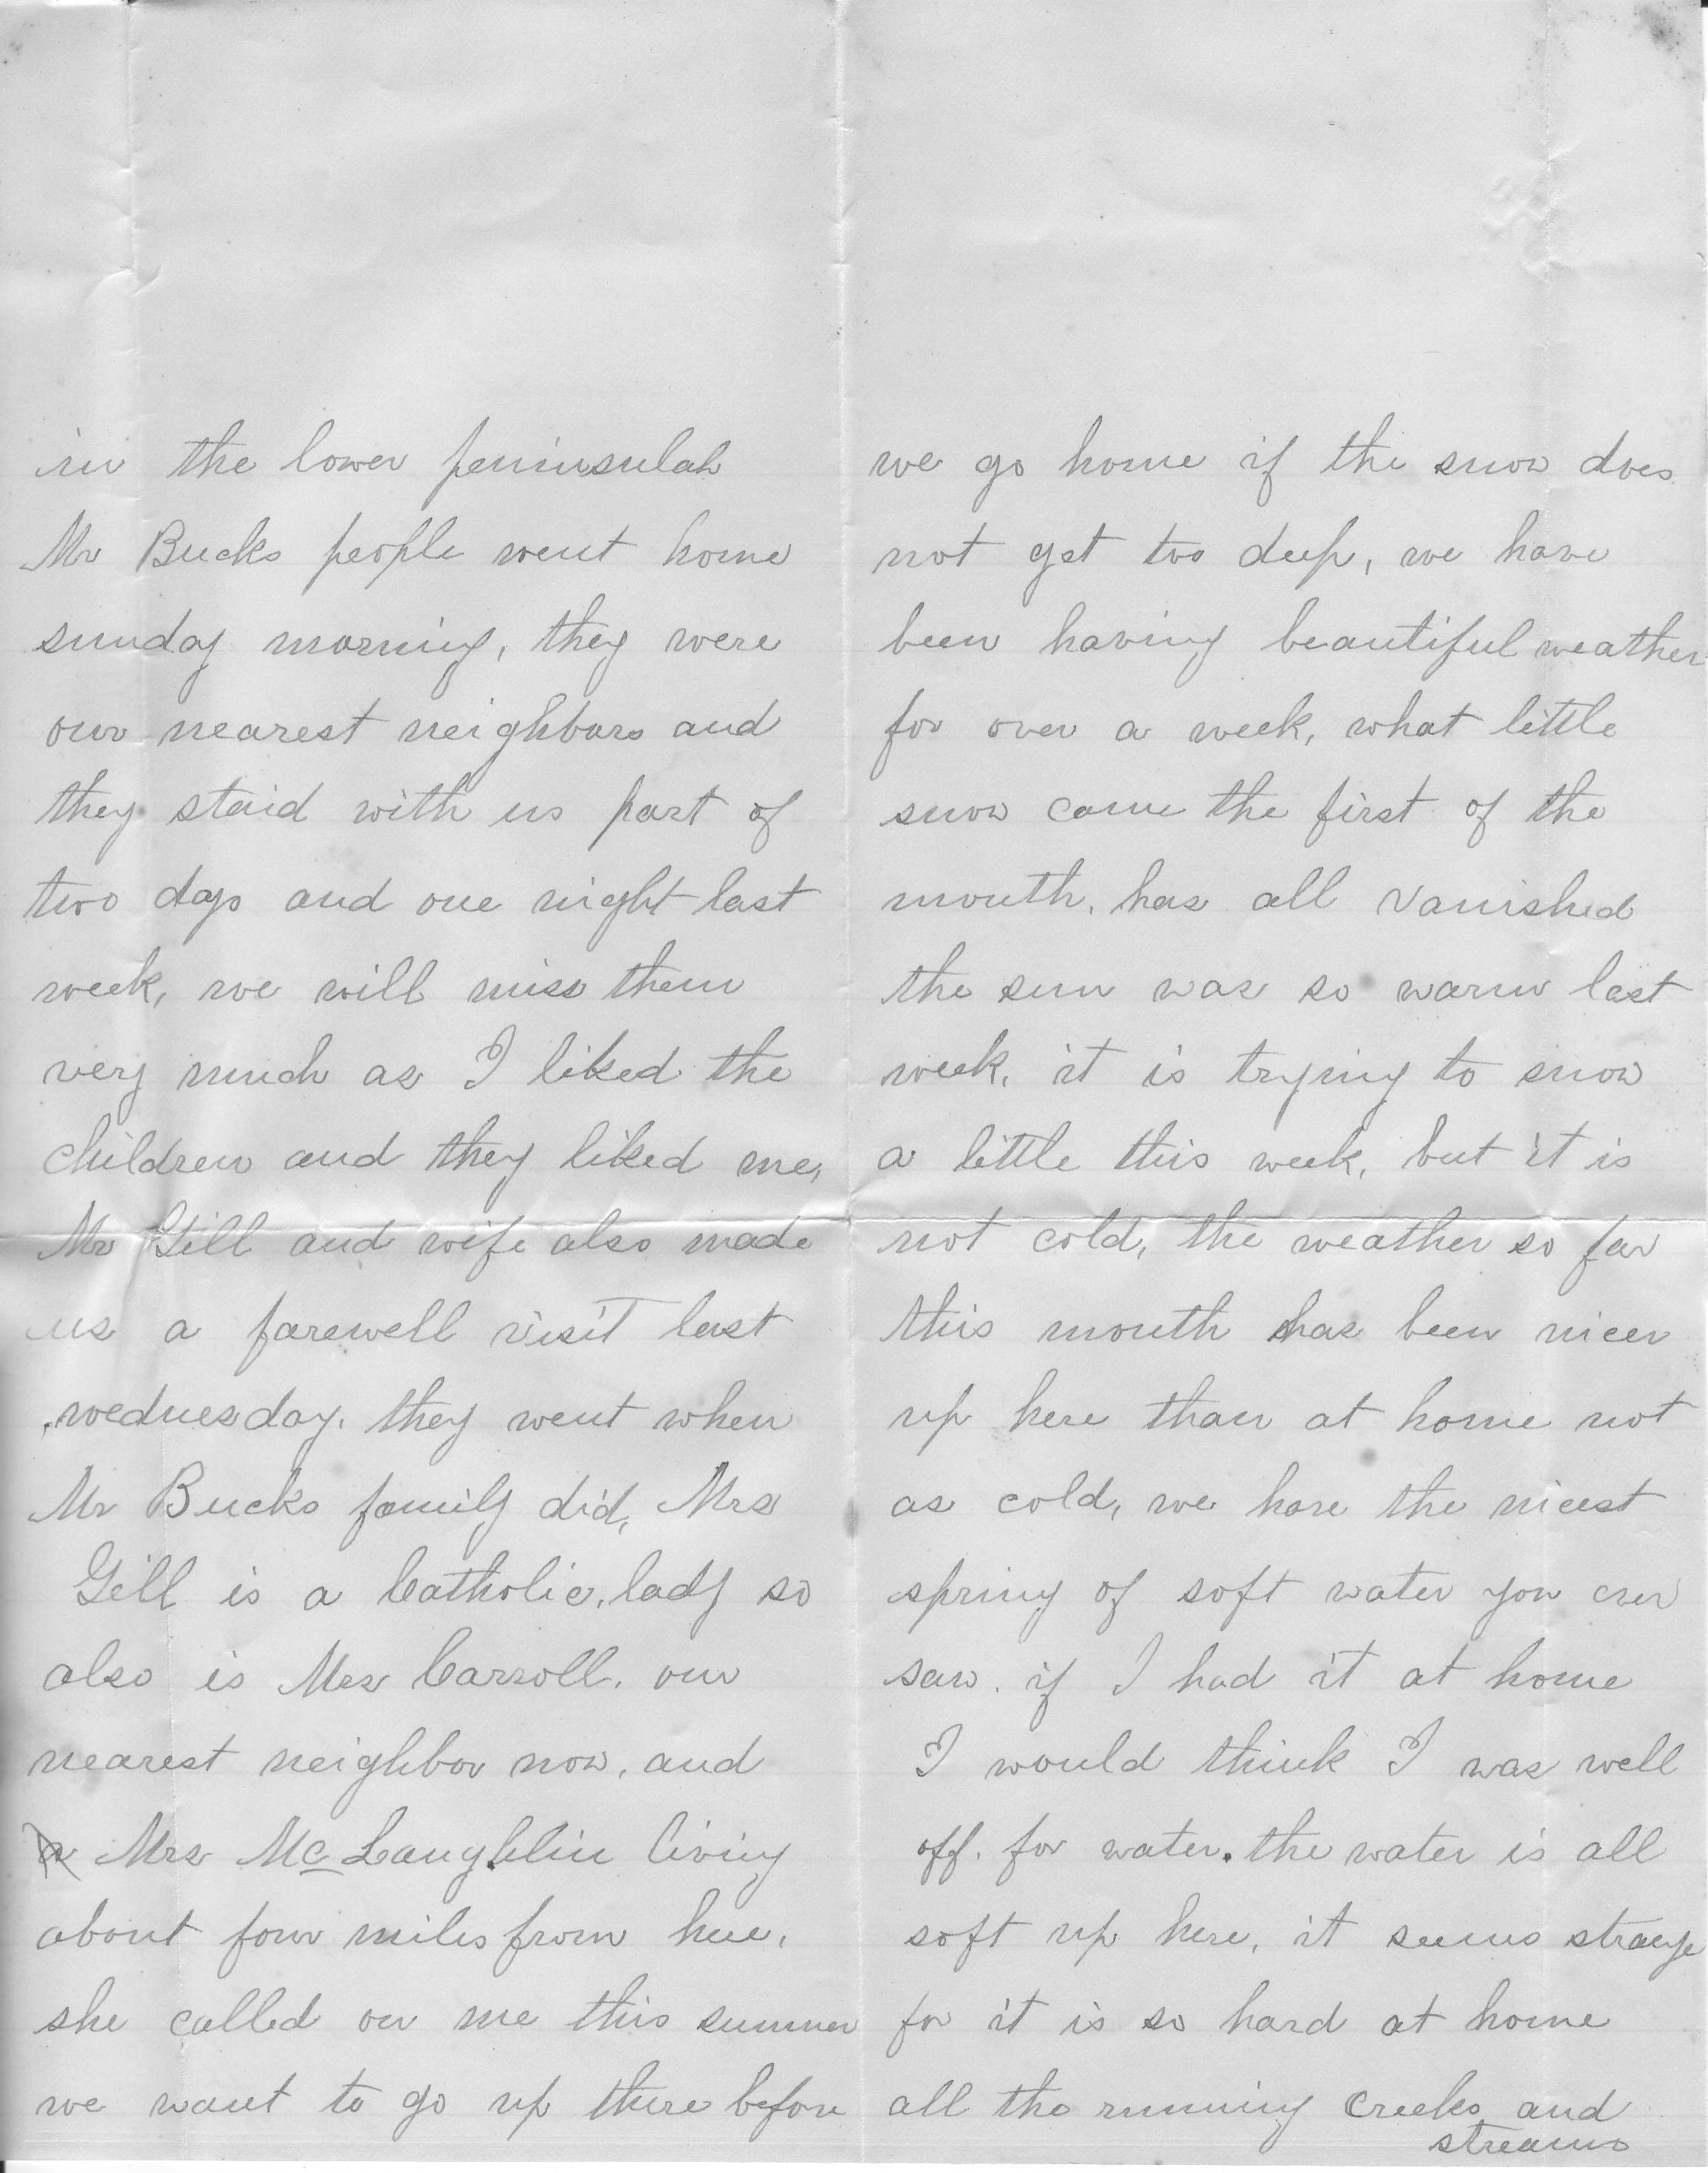 in the lower peninsulah
Mr Bucks people went home
sunday morning, they were
our nearest neighbors and
they staid with us part of
two days and one night last
week, we will miss them
very much as I liked the
children and they liked me,
Mr Gill and wife also made
us a farewell visit last
wednesday. they went when
Mr Bucks family did, Mrs
Gill is a Catholic, lady so
also is Mrs Carroll. our
nearest neighbor now, and
Mrs McLaughlin living
about four miles from here,
she called on me this summer
we want to go up there before
we go home if the snow does
not get too deep, we have
been having beautiful weather
for over a week, what little
snow came the first of the
month, has all vanished
the sun was so warm last
week, it is trying to snow
a little this week, but it is
not cold, the weather so far
this month has been nicer
up here than at home not
as cold, we have the nicest
spring of soft water you ever
saw. if I had it at home
I would think I was well
off. for water. the water is all
soft up here, it seems strange
for it is so hard at home
all the running creeks and
streams